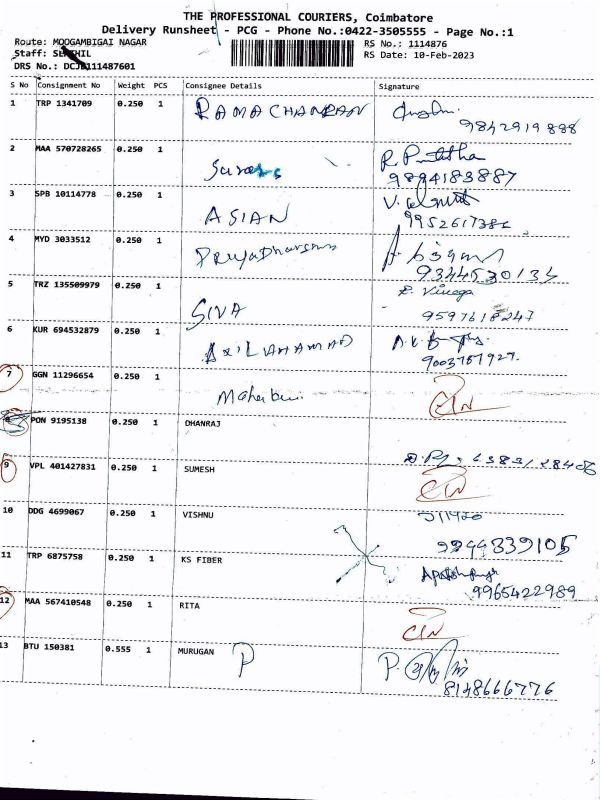 THE PROFESSIONAL COURIERS, Coimbatore
Delivery Runsheet - PCG - Phone No.:0422-3505555 - Page No.:1
Route: MOOGAMBIGAI NAGAR
RS No.: 1114876
Staff: SENTHIL
RS Date: 10-Feb-2023
DRS No.: DCJ8111487601
S No Consignment No Weight PCS Consignee Details Signature
1 TRP 1341709 0.250 1 RAMACHANRAN
9842919888
2 MAA 570728265 0.250 1
9894183887
3 SPB 10114778 0.250 1 ASIAN
9952617386
4 MYD 3033512 0.250 1
9344530134
5 TRZ 135509979 0.250 1 SIVA
9597618247
6 KUR 694532879 0.250 1
9003757927
7 GGN 11296654 0.250 1
8 PON 9195138 0.250 1 DHANRAJ
9 VPL 401427831 0.250 1 SUMESH
10 DDG 4699067 0.250 1 VISHNU
9944839105
11 TRP 6875758 0.250 1 KS FIBER
9965422989
12 MAA 567410548 0.250 1 RITA
13 BTU 150381 0.555 1 MURUGAN P P.
8148666776